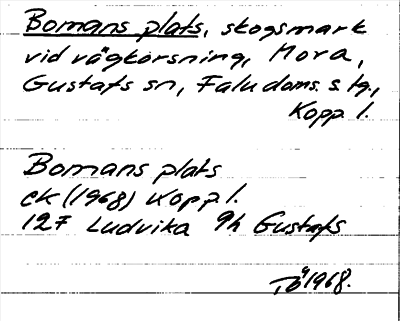 Bomans plats, skogsmark
vid vägkorsning, Mora,
Gustafs sn, Faludoms. s. tg.,
Kopp. l.
Bomans plats
ek (1968) Kopp. l.
12F Ludvika 9h Gustafs
1968.